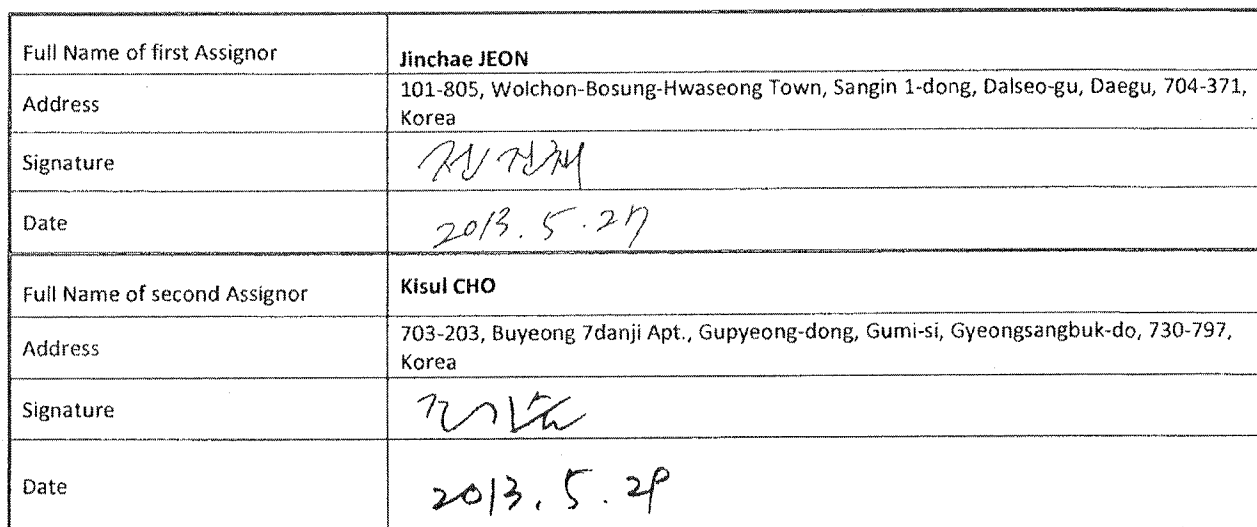 Full Name of first Assignor
Jinchae JEON
Address
101-805, Wolchon-Bosung-Hwaseong Town, Sangin 1-dong, Dalseo-gu, Daegu, 704-371,
Korea
Signature
전진채
Date
2013. 5. 27
Full Name of second Assignor
Kisul CHO
Address
703-203, Buyeong 7danji Apt., Gupyeong-dong, Gumi-si, Gyeongsangbuk-do, 730-797,
Korea
Signature
Date
2013. 5. 29